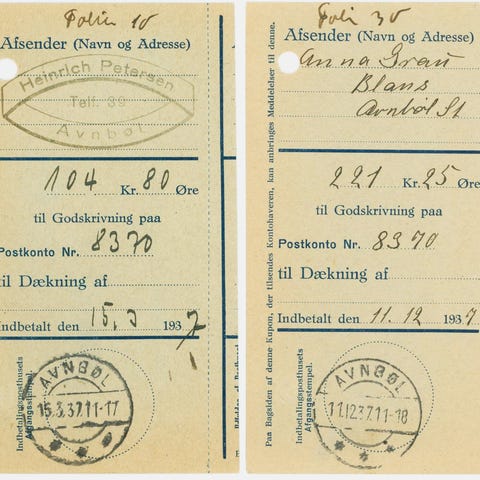 Folio 10
Afsender (Navn og Adresse)
Heinrich Petersen
Telf. 39
Avnbøl
104 Kr. 80 Øre
til Godskrivning paa
Postkonto Nr. 8370
til Dækning af
Indbetalt den 15.3 1937
Indbetalingsposthusets
Afgangsstempel.
AVNBØL
15.3.37.11-17
Folio 30
Afsender (Navn og Adresse)
Anna Grau
Blans
Avnbøl St
221 Kr. 25 Øre
til Godskrivning paa
Postkonto Nr. 8370
til Dækning af
Indbetalt den 11.12 1937
Paa Bagsiden af denne Kupon, der tilsendes Kontohaveren, kan anbringes Meddelelser til denne.
Indbetalingsposthusets
Afgangsstempel.
AVNBØL
11.12.37.11-18